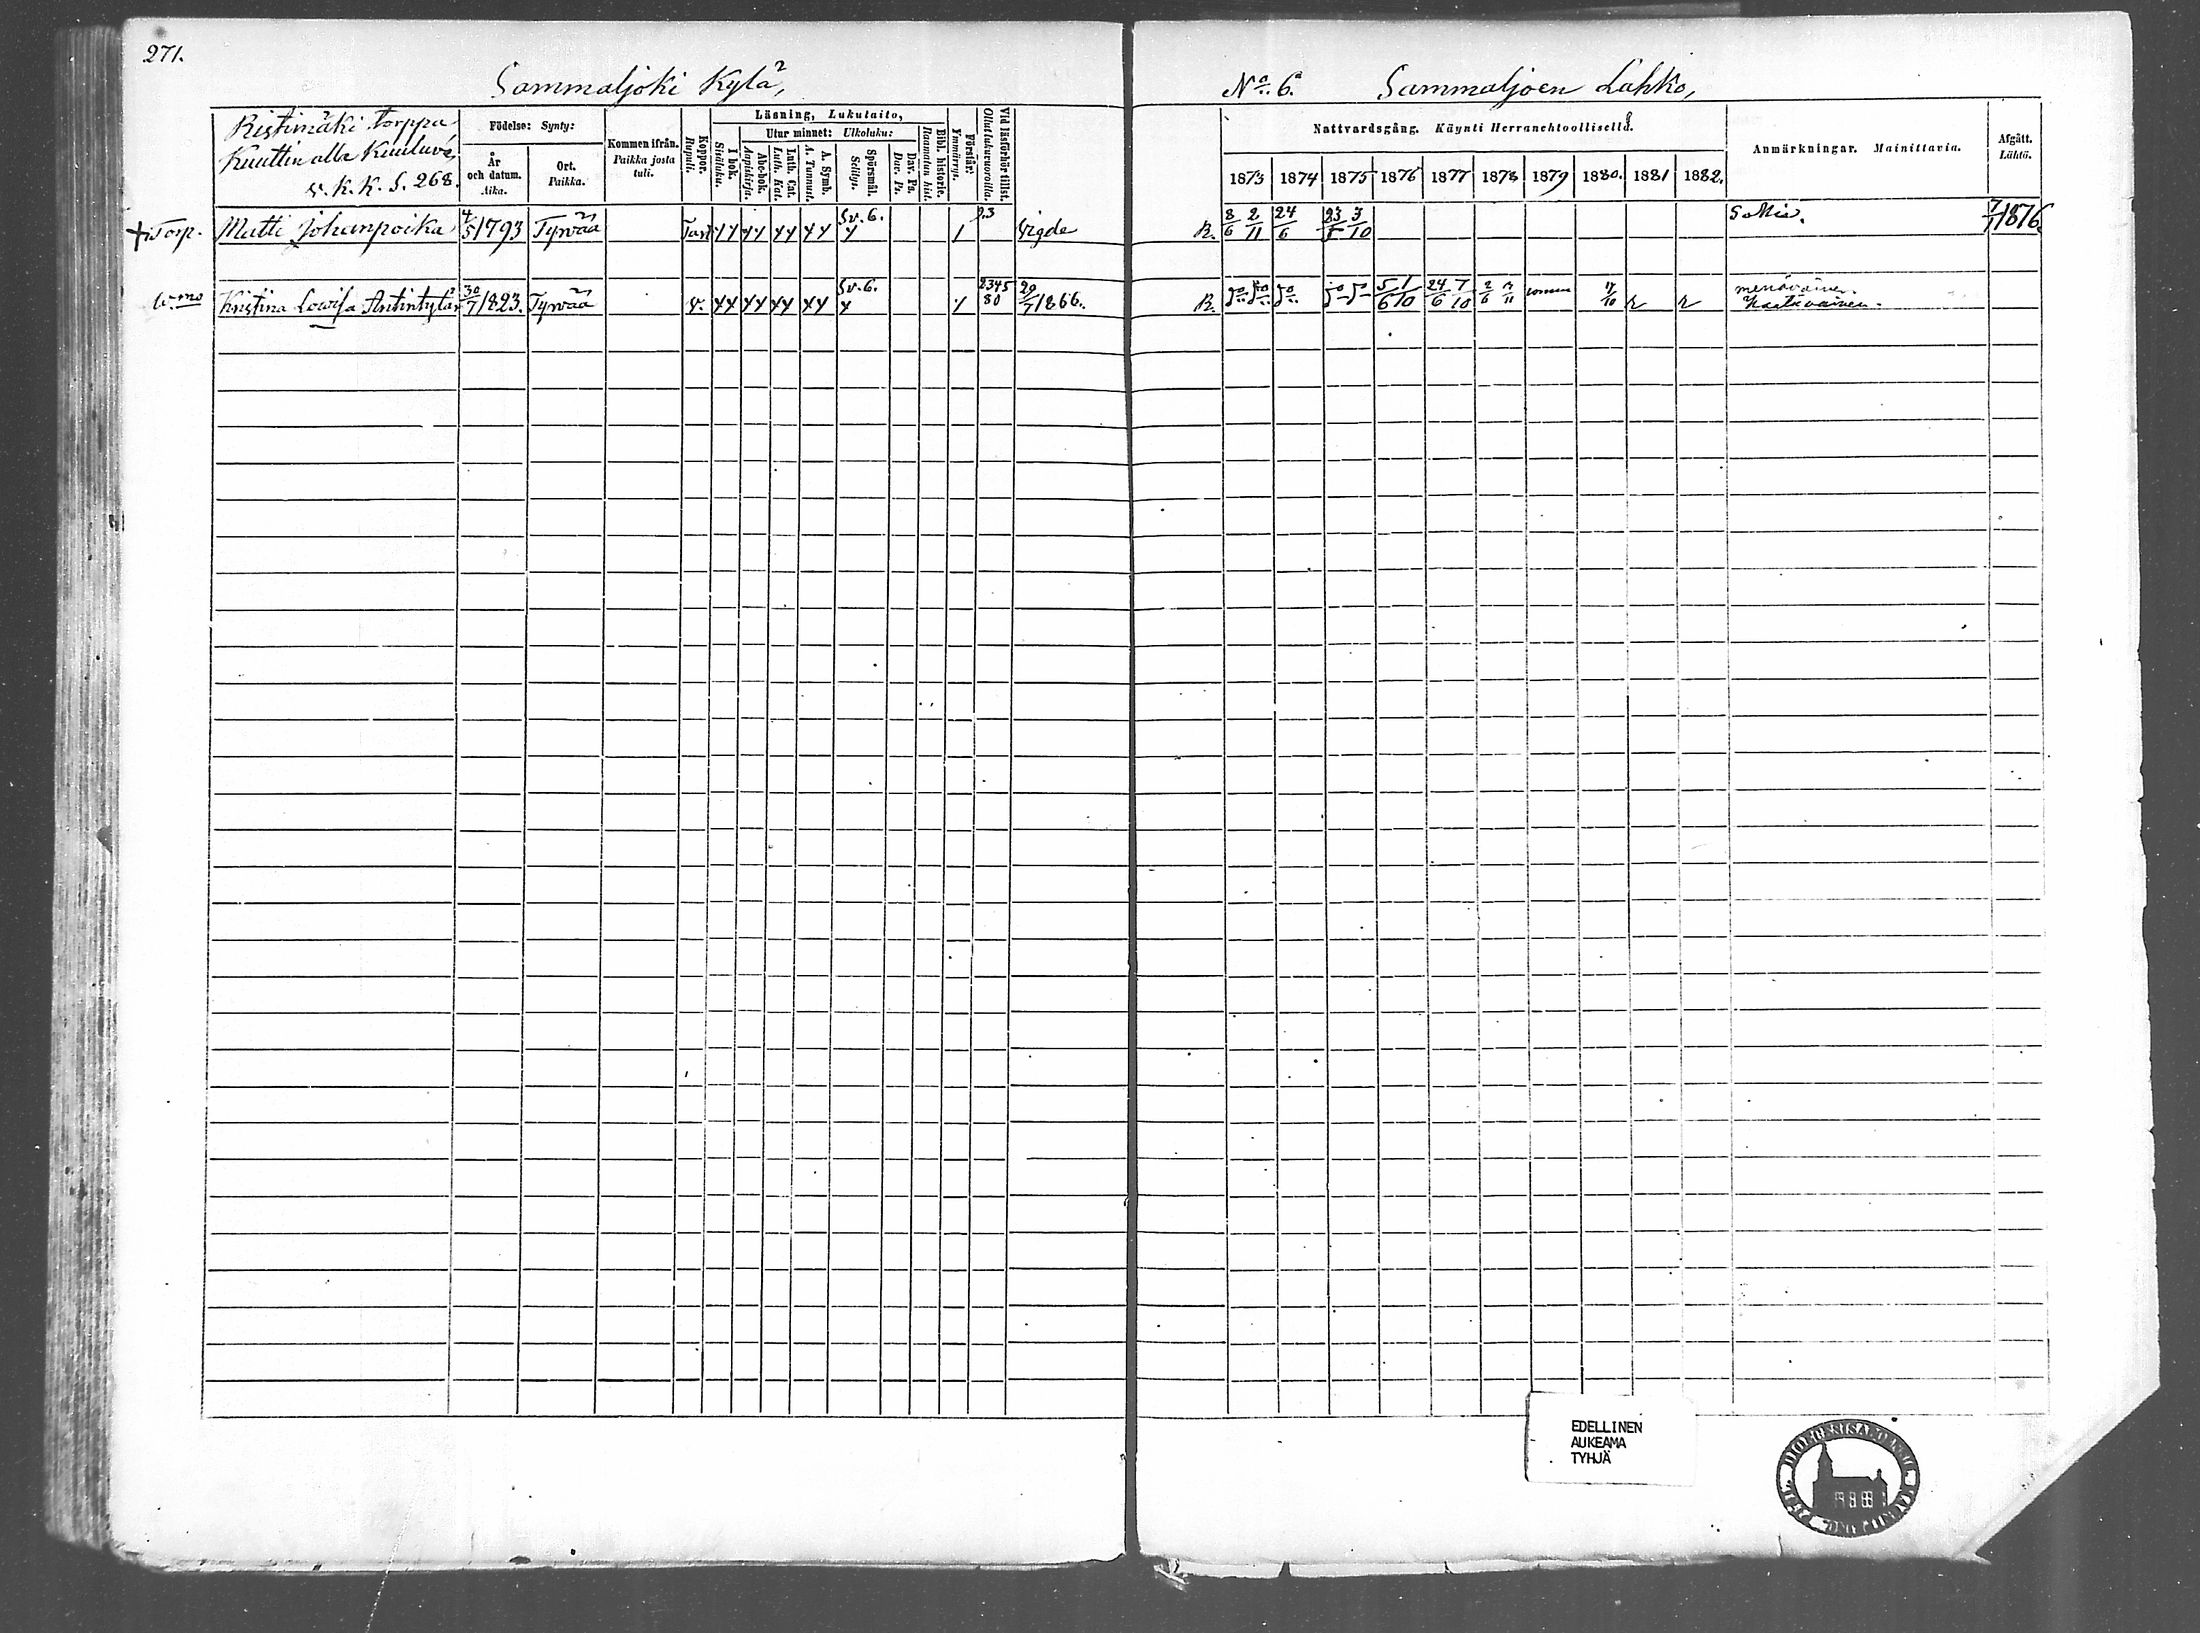 271.
Sammaljoki Kylä,
No. 6. Sammaljoen Lahko,
Ristimäki torppa
Kuuttin alle Kuuluva,
v. K. K. S. 268.
Födelse: Synty:
År och datum. Aika.
Ort. Paikka.
Kommen ifrån. Paikka josta tuli.
Koppor. Rupuli.
Läsning, Lukutaito,
I bok. Sisäluku.
Utur minnet: Ulkoluku:
Abc-bok. Aapiskirja.
Luth. Cat. Luth. Kat.
A. Symb. A. Tunnust.
Spörsmål. Selitys.
Dav. Ps. Dav. Ps.
Bibl. historie. Raamatun hist.
Förstår: Ymmärrys.
Vid läsförhör tillst. Ollut lukuvuoroilla.
Nattvardsgång. Käynti Herranehtoollisella.
1873 1874 1875 1876 1877 1878 1879 1880. 1881 1882.
Anmärkningar. Mainittavia.
Afgått. Lähtö.
+ Torp. Matti Johanpoika 4/5 1793 Tyrvää Sv. 6. 1 Vigde R. 8/6 2/11 24/6 23/5 3/10 Sokia. 7/7 1876.
Kristina Lowisa Antintytär 30/7 1823. Tyrvää v. Sv. 6. 2345 80 29/7 1866. R. 5/6 1/10 24/6 7/10 2/6 17/10 r r
EDELLINEN
AUKEAMA
TYHJÄ